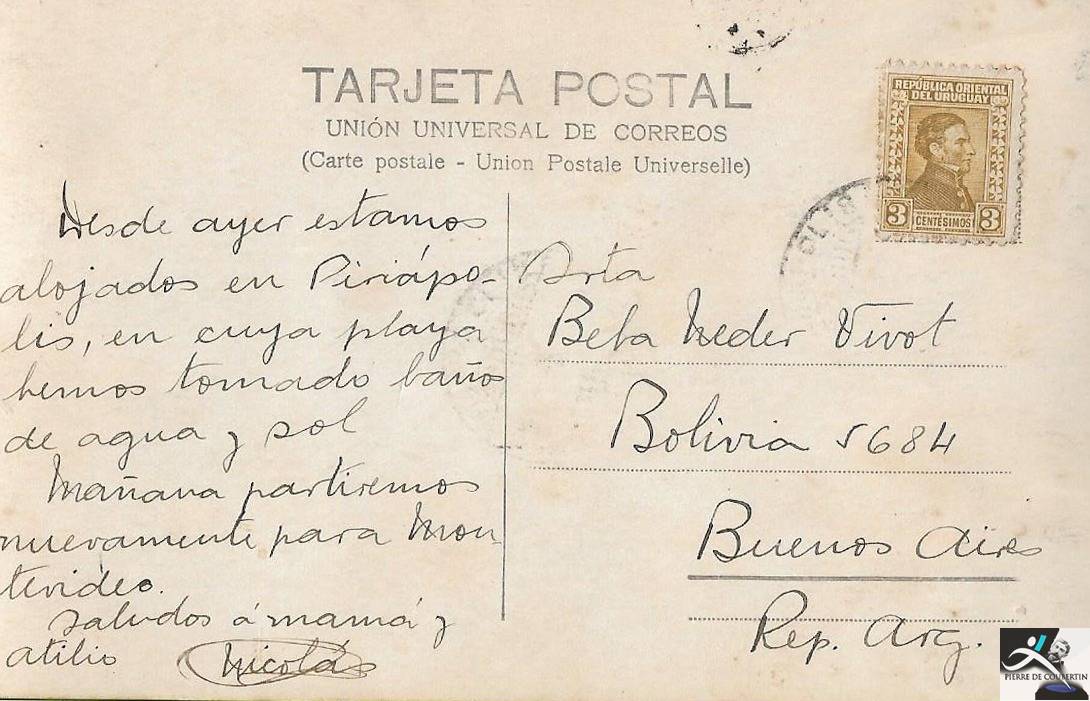 TARJETA POSTAL
UNIÓN UNIVERSAL DE CORREOS
(Carte postale - Union Postale Universelle)
REPÚBLICA ORIENTAL
DEL URUGUAY
3 CENTÉSIMOS 3
Desde ayer estamos
alojados en Piriápo-
lis, en cuya playa
hemos tomado baños
de agua y sol
Mañana partiremos
nuevamente para Mon-
tevideo.
Saludos á mamá y
atilio Nicolás
Srta
Beba Neder Vivot
Bolivia 5684
Buenos Aires
Rep. Arg.
PIERRE DE COUBERTIN